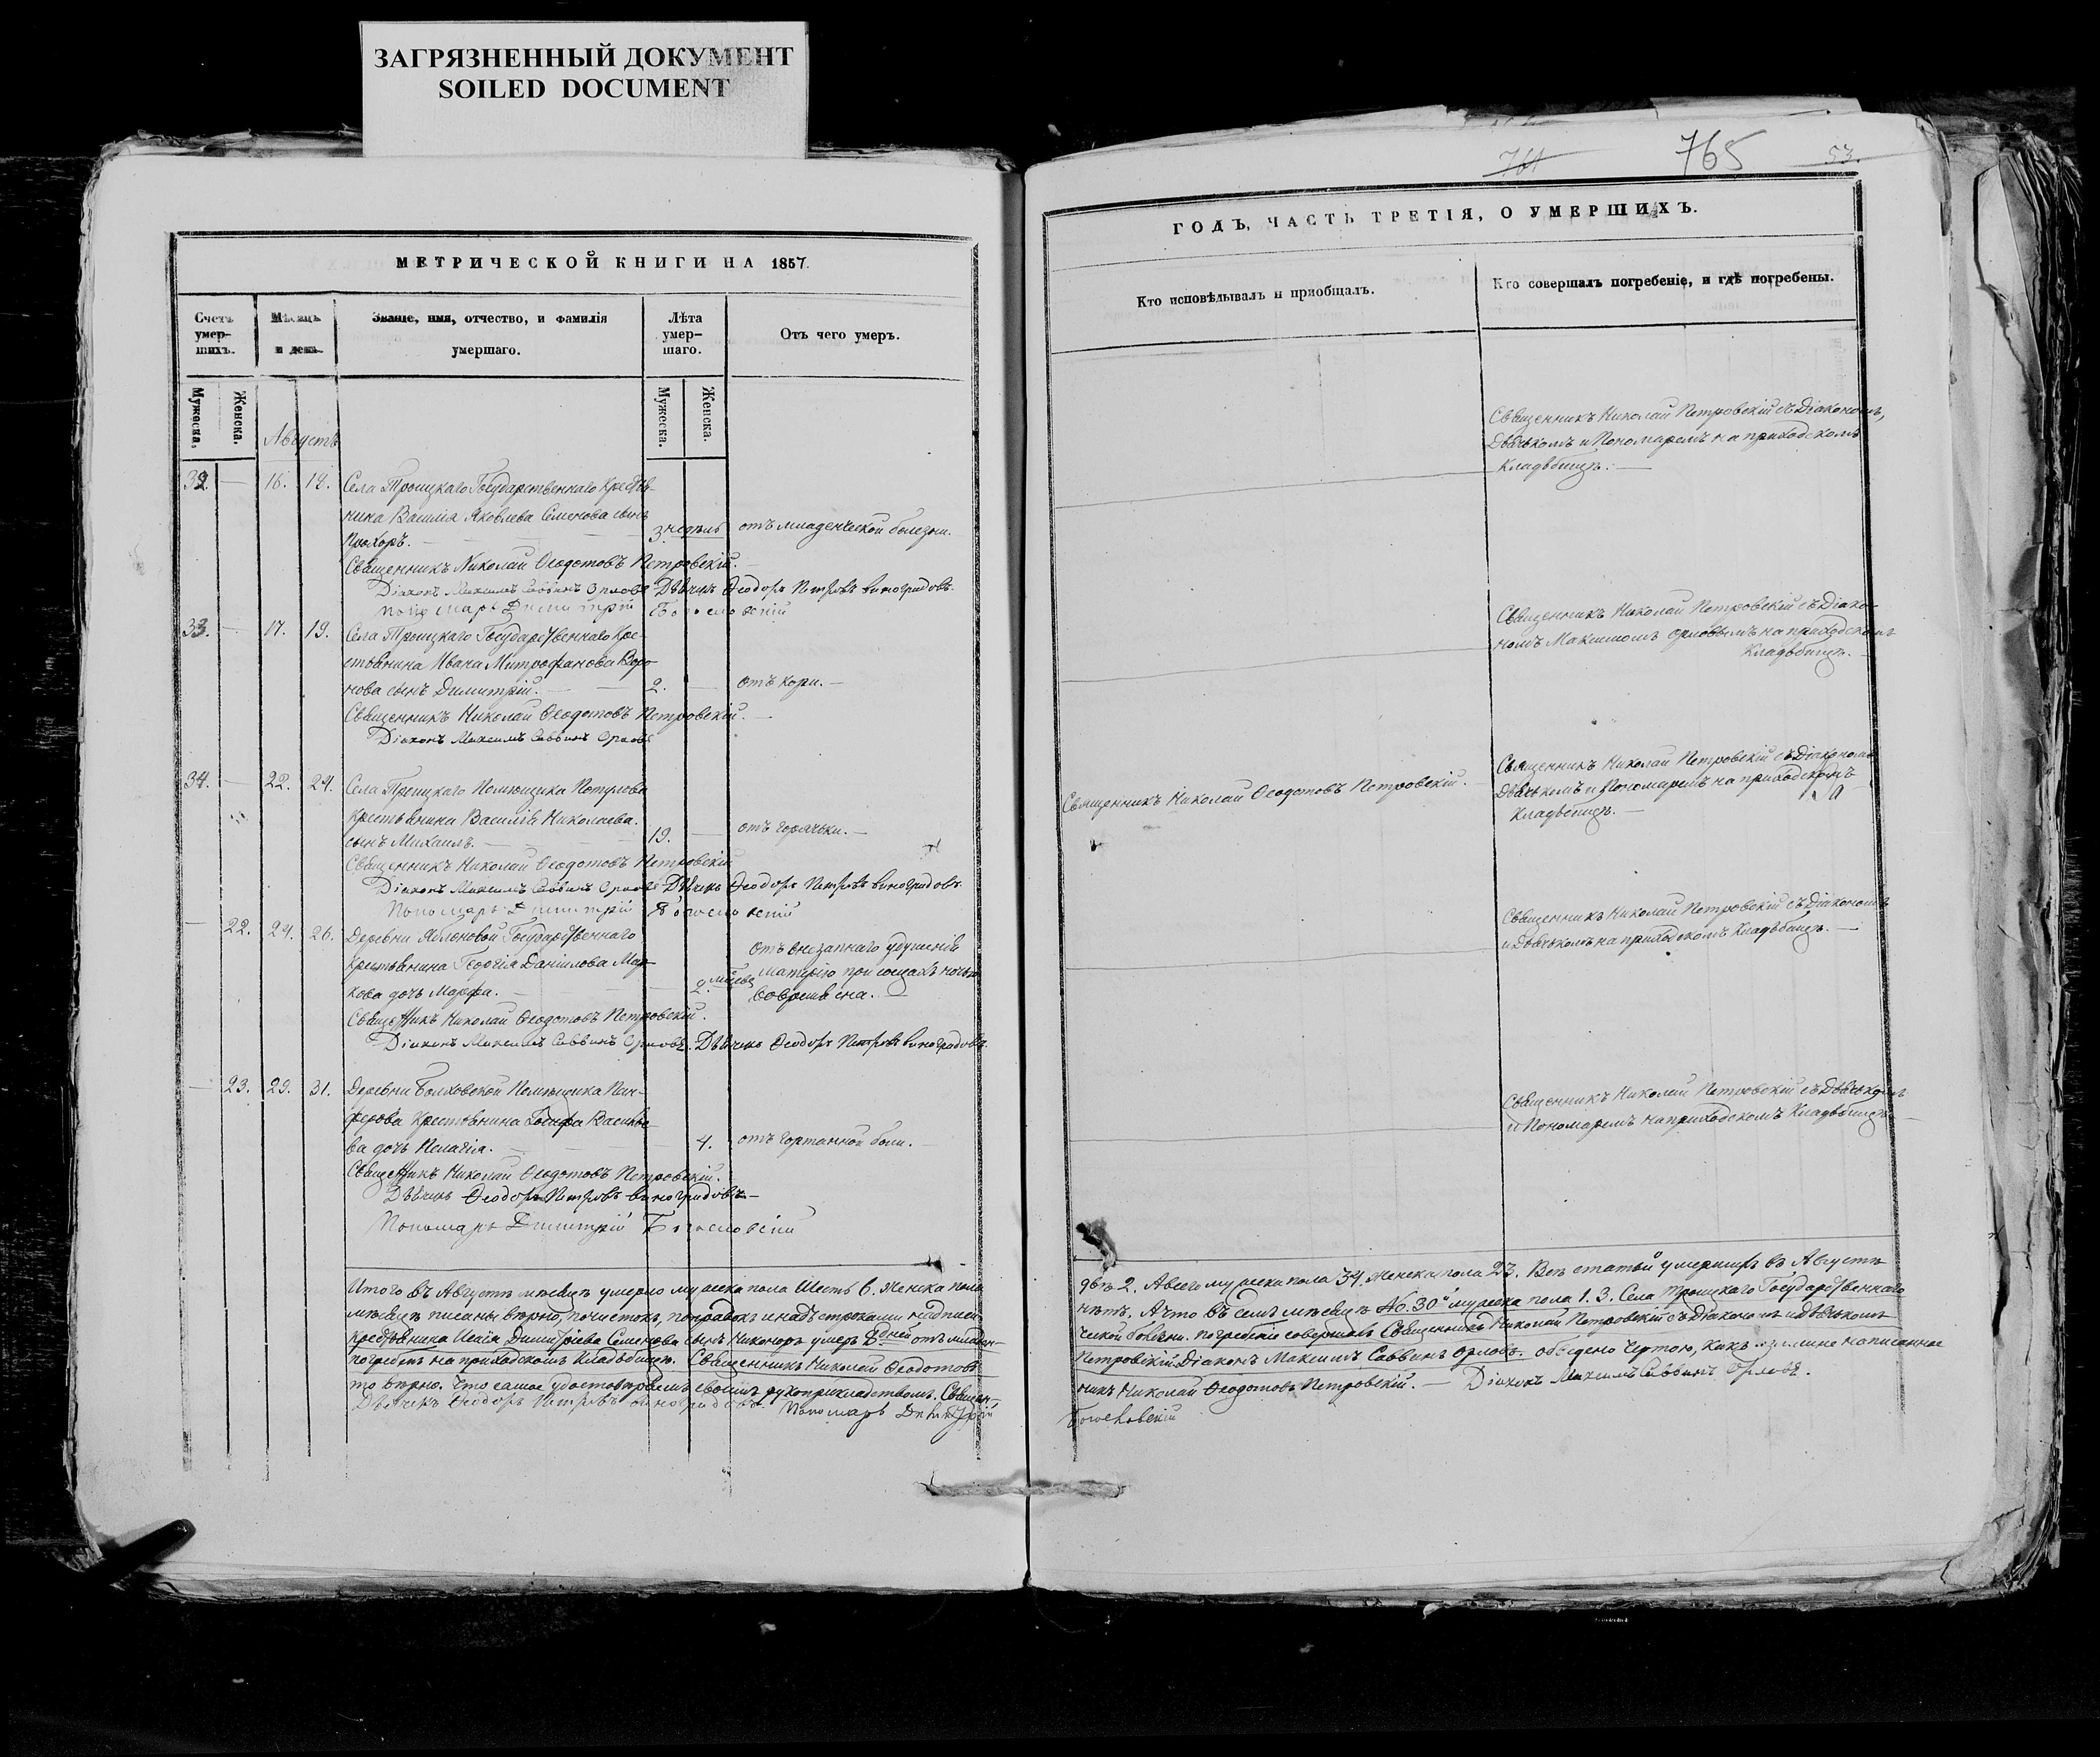 ЗАГРЯЗНЕННЫЙ ДОКУМЕНТ
SOILED DOCUMENT
МЕТРИЧЕСКОЙ КНИГИ НА 1857.
Счетъ умер-шихъ.
Мѣсяцъ и день
Званіе, имя, отчество, и фамилія умершаго.
Лѣта умер-шаго.
Отъ чего умеръ.
Мужеска.
Женска.
Мужеска.
Женска.
Августъ
32. — 16. 18. Села Троицкаго Государственнаго Кресть-
янина Василія Яковлева Семенова сынъ
Прохоръ. — 3 недѣль отъ младенческой болезни.
Священникъ Николай Ѳеодотовъ Петровскій.
Діаконъ Максимъ Саввинъ Орловъ Дьячекъ Ѳеодоръ Петровъ Виноградовъ.
Пономарь Димитрій Богословскій
33. — 17. 19. Села Троицкаго Государственнаго Кре-
стьянина Ивана Митрофанова Воро-
нова сынъ Димитрій. — 2. — отъ кори. —
Священникъ Николай Ѳеодотовъ Петровскій. —
Діаконъ Максимъ Саввинъ Орловъ
34. — 22. 24. Села Троицкаго Помѣщика Потулова
Крестьянина Василія Николаева
сынъ Михаилъ. — 19. — отъ горячки. —
Священникъ Николай Ѳеодотовъ Петровскій
Діаконъ Максимъ Саввинъ Орловъ Дьячекъ Ѳеодоръ Петровъ Виноградовъ.
Пономарь Димитрій Богословскій
— 22. 24. 26. Деревни Яблоновой Государственнаго
Крестьянина Георгія Даніилова Мар-
кова дочь Марфа. — 2 мѣсяц отъ внезапнаго удушенія
матерію при сосцахъ ночью
вовремя сна. —
Священникъ Николай Ѳеодотовъ Петровскій.
Діаконъ Максимъ Саввинъ Орловъ. Дьячекъ Ѳеодоръ Петровъ Виноградовъ.
— 23. 29. 31. Деревни Болховской Помѣщика Пан-
ферова Крестьянина Іосифа Василье-
ва дочь Пелагія. — 4. отъ гортанной боли. —
Священникъ Николай Ѳеодотовъ Петровскій.
Дьячекъ Ѳеодоръ Петровъ Виноградовъ —
Пономарь Димитрій Богословскій
Итого въ Августѣ мѣсяцѣ умерло мужеска пола Шесть 6. Женска пола
мѣсяцѣ писаны вѣрно, почистокъ, поправокъ и надъ строками надписи
крестьянина Димитріева Семенова сынъ Никоноръ умеръ дней отъ младен-
погребенъ на приходскомъ Кладбищѣ. Священникъ Николай Ѳеодотовъ
то вѣрно. Что самое удостовѣряемъ своимъ рукоприкладствомъ. Священ-
Дьячекъ Ѳеодоръ Петровъ Виноградовъ. Пономарь Димитрій
761 765 53.
ГОДЪ, ЧАСТЬ ТРЕТІЯ, О УМЕРШИХЪ.
Кто исповѣдывалъ и пріобщалъ.
Кто совершалъ погребеніе, и гдѣ погребены.
Священникъ Николай Петровскій съ Діакономъ,
Дьячкомъ и Пономаремъ на приходскомъ
Кладбищѣ. —
Священникъ Николай Петровскій съ Діако-
номъ Максимомъ Орловымъ на приходскомъ
Кладбищѣ. —
Священникъ Николай Ѳеодотовъ Петровскій. —
Священникъ Николай Петровскій съ Діакономъ
Дьячкомъ и Пономаремъ на приходскомъ
Кладбищѣ. —
Священникъ Николай Петровскій съ Діакономъ
и Дьячкомъ на приходскомъ Кладбищѣ. —
Священникъ Николай Петровскій съ Дьячкомъ
и Пономаремъ на приходскомъ Кладбищѣ. —
двѣ 2. А всего мужеска пола 34. Женска пола 23. Всѣ статьи умершихъ въ Августѣ
нѣтъ. А что въ семъ мѣсяцѣ No. 30й мужеска пола 1. 3. Села Троицкаго Государственнаго
ческой болѣзни. Погребеніе совершалъ Священникъ Николай Петровскій съ Діакономъ и Дьячкомъ
Петровскій. Діаконъ Максимъ Саввинъ Орловъ. обведено чертою, какъ написанное
никъ Николай Ѳеодотовъ Петровскій. — Діаконъ Максимъ Саввинъ Орловъ.
Богословскій